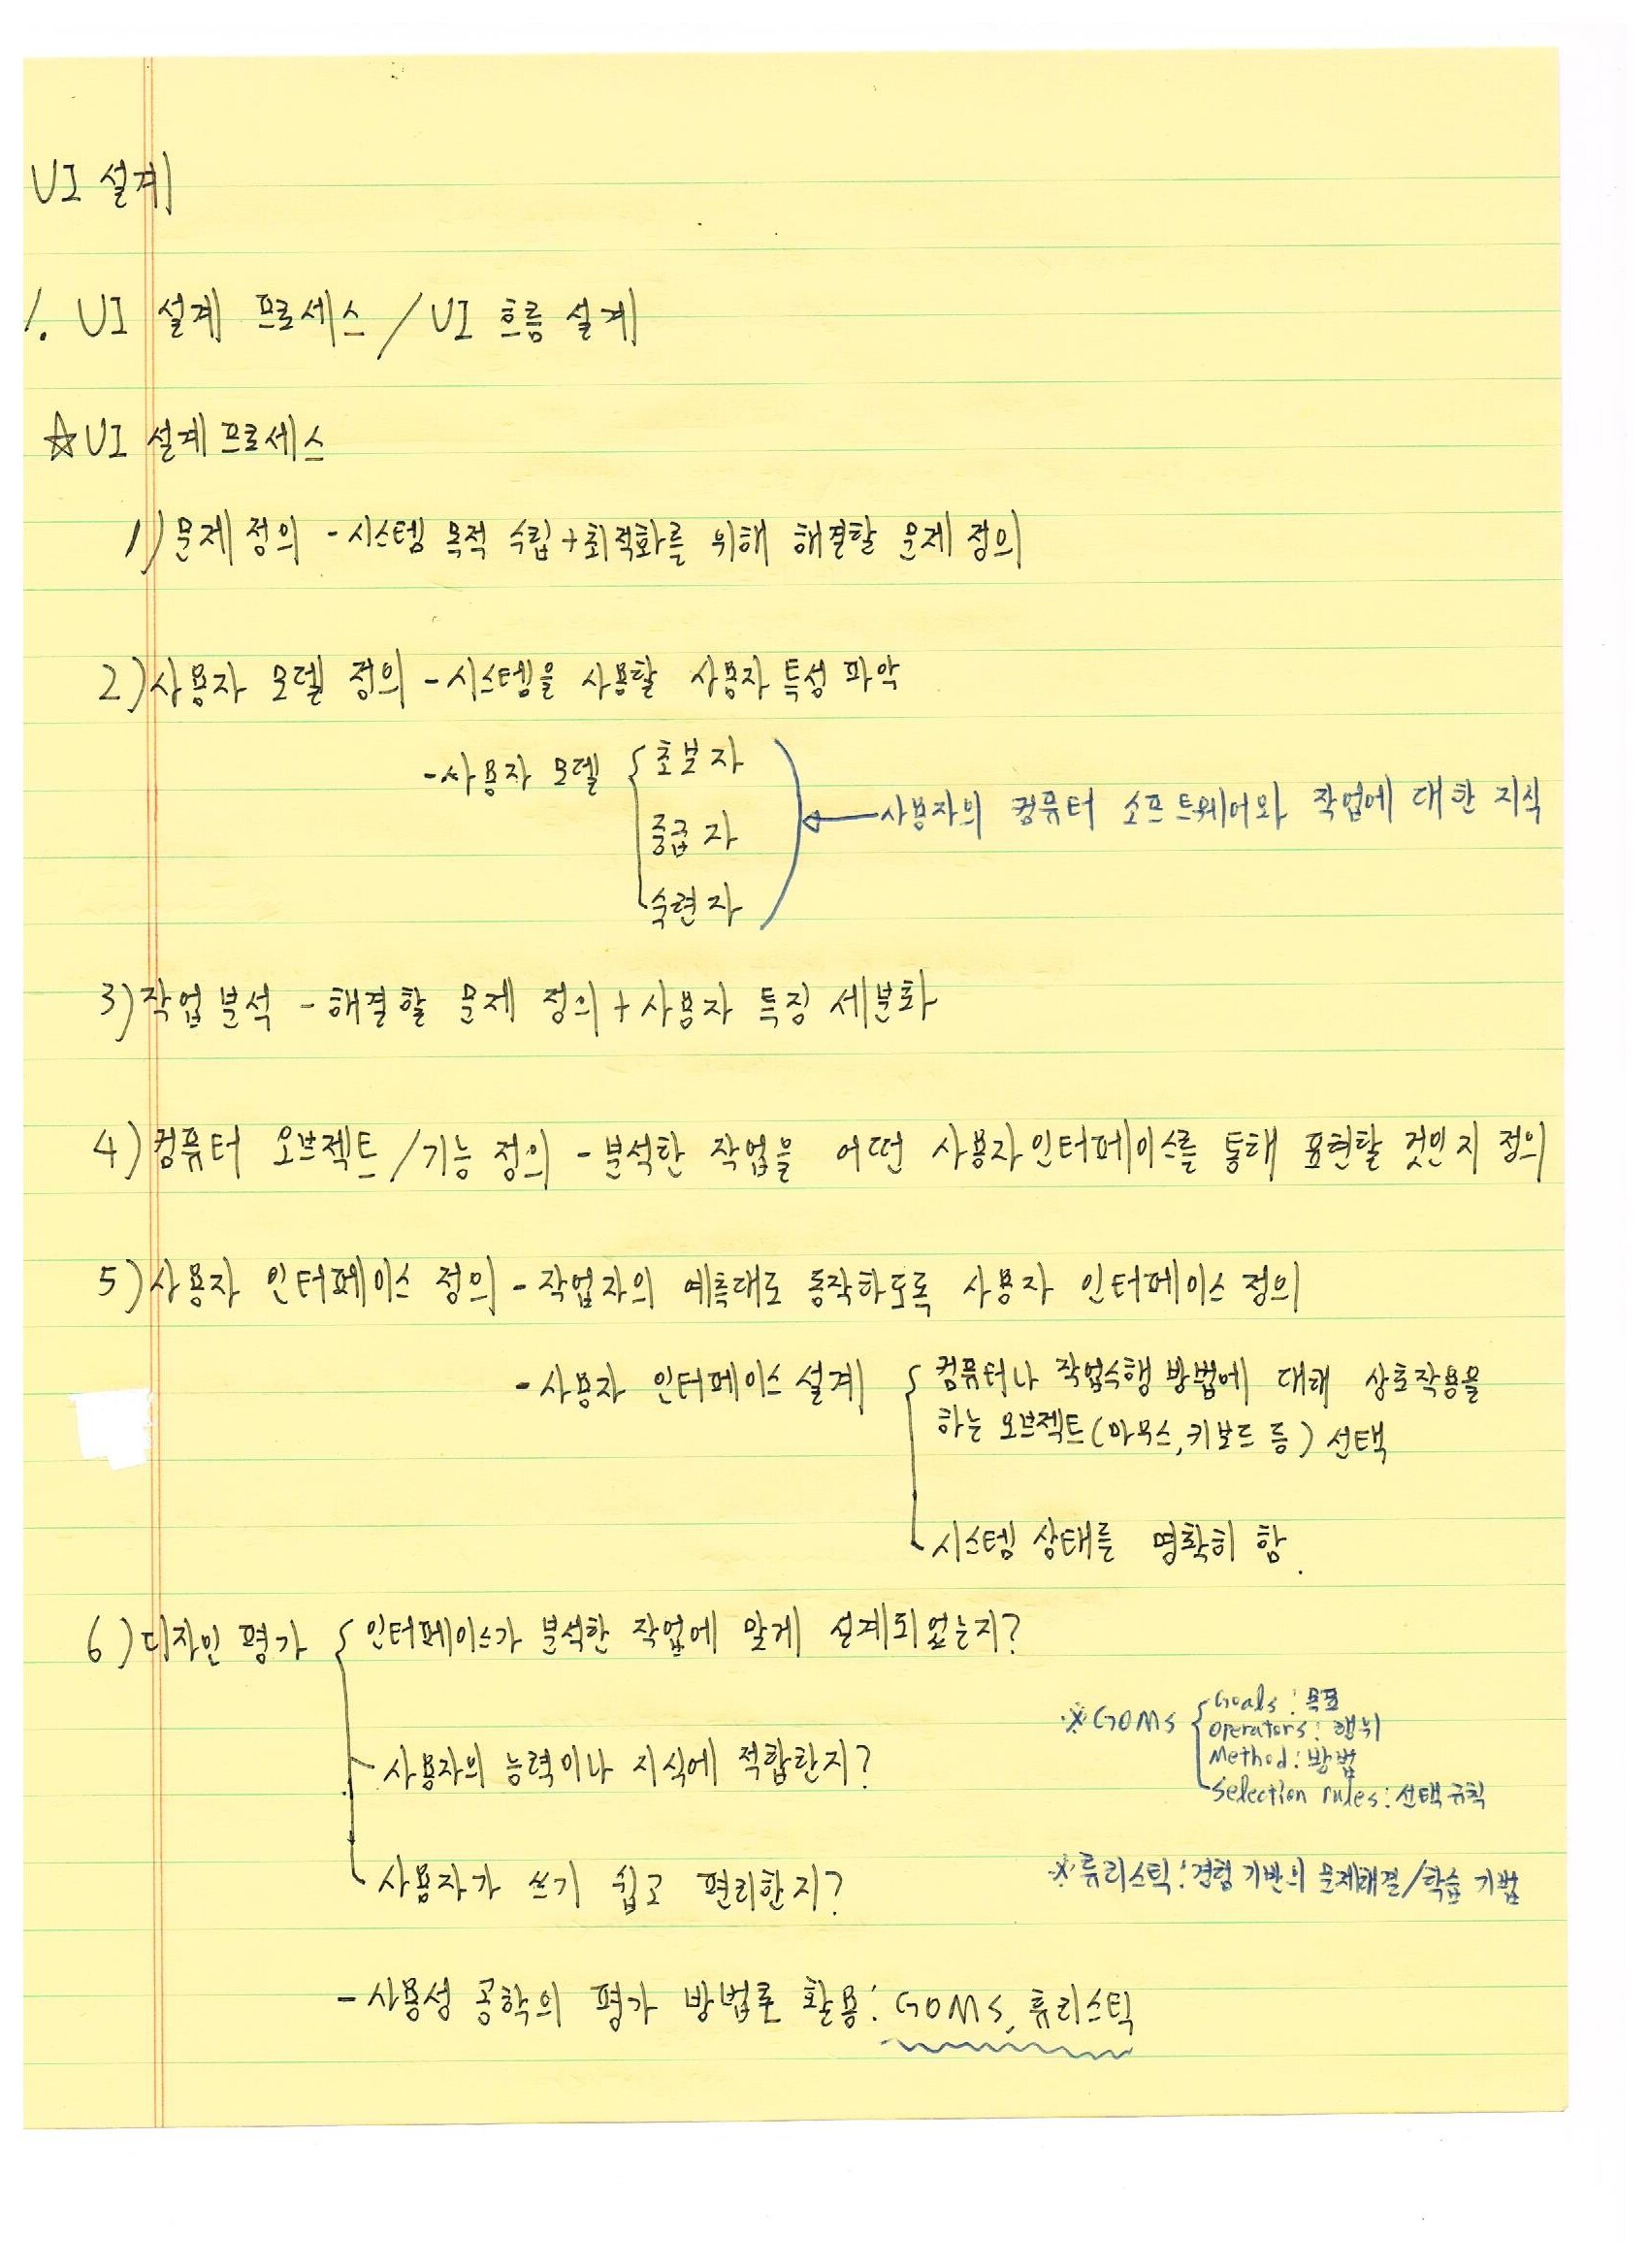 UI 설계
1. UI 설계 프로세스 / UI 흐름 설계
☆UI 설계 프로세스
1) 문제 정의 - 시스템 목적 수립 + 최적화를 위해 해결할 문제 정의
2) 사용자 모델 정의 - 시스템을 사용할 사용자 특성 파악
- 사용자 모델 { 초보자
중급자
숙련자
← 사용자의 컴퓨터 소프트웨어와 작업에 대한 지식
3) 작업 분석 - 해결할 문제 정의 + 사용자 특징 세분화
4) 컴퓨터 오브젝트 / 기능 정의 - 분석한 작업을 어떤 사용자 인터페이스를 통해 표현할 것인지 정의
5) 사용자 인터페이스 정의 - 작업자의 예측대로 동작하도록 사용자 인터페이스 정의
- 사용자 인터페이스 설계 { 컴퓨터나 작업수행 방법에 대해 상호작용을
하는 오브젝트(마우스, 키보드 등) 선택
시스템 상태를 명확히 함.
6) 디자인 평가 { 인터페이스가 분석한 작업에 맞게 설계되었는지?
사용자의 능력이나 지식에 적합한지?
사용자가 쓰기 쉽고 편리한지?
※ GOMS { Goals : 목표
Operators : 행위
Method : 방법
Selection rules : 선택 규칙
※ 휴리스틱 : 경험 기반의 문제해결/학습 기법
- 사용성 공학의 평가 방법론 활용 : GOMS, 휴리스틱